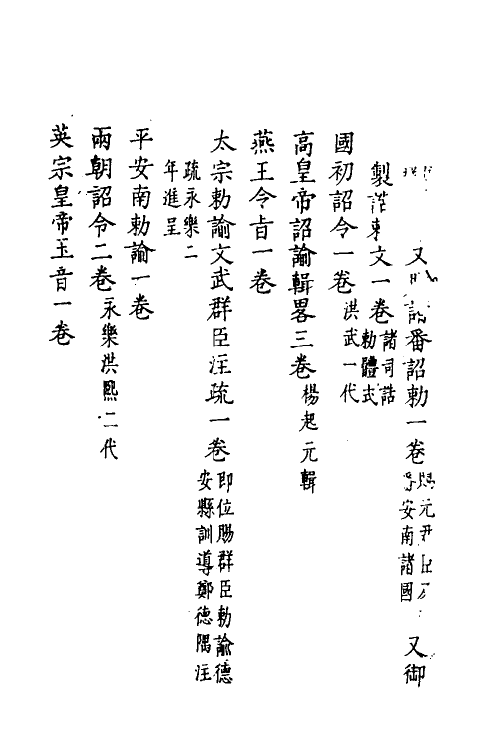 又 諸番詔勅一卷 元君臣及安南諸國 又御
製誥東文一卷 諸司誥勅體式
國初詔令一卷 洪武一代
高皇帝詔諭輯畧三卷 楊起元輯
燕王令旨一卷
太宗勅諭文武群臣注疏一卷 即位賜群臣勅諭德安縣訓導鄭德隅注
疏永樂二年進呈
平安南勅諭一卷
兩朝詔令二卷 永樂洪熙二代
英宗皇帝玉音一卷